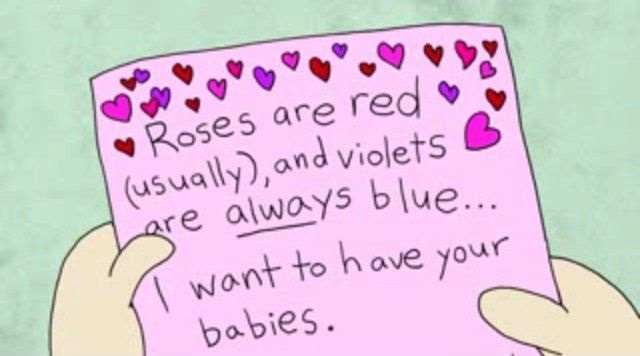 Roses are red
(usually), and violets
are always blue...
I want to have your
babies.